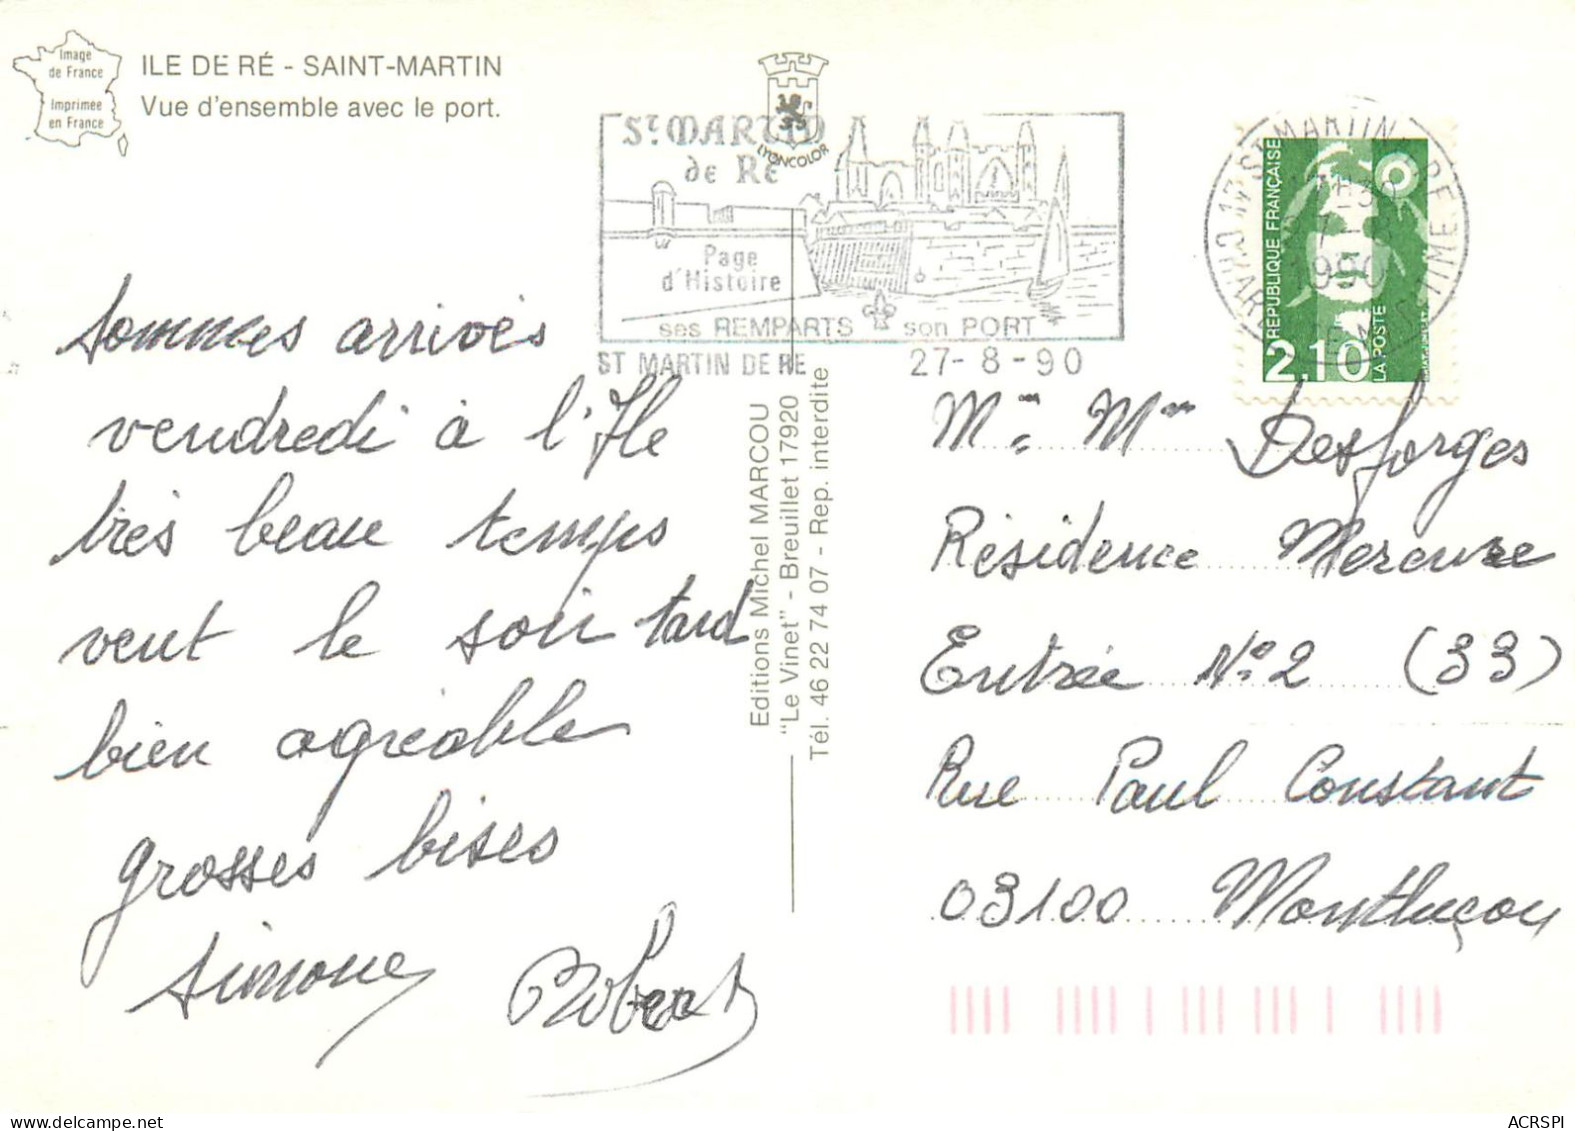 Image
de France
Imprimée
en France
ILE DE RÉ - SAINT-MARTIN
Vue d'ensemble avec le port.
LYONCOLOR
St MARTIN
de Ré
Page
d'Histoire
ses REMPARTS son PORT
ST MARTIN DE RE 27-8-90
17 ST MARTIN DE RE
1990
CHARENTE MARITIME
RÉPUBLIQUE FRANÇAISE
2,10
LA POSTE
sommes arrivés
vendredi à l'Ile
très beau temps
vent le soir tard
bien agréable
grosses bises
Simone Robert
Editions Michel MARCOU
"Le Vinet" - Breuillet 17920
Tél. 46 22 74 07 - Rep. interdite
Mr. Mme Desforges
Résidence Mercure
Entrée N°2 (33)
Rue Paul Constant
03100 Montluçon
www.delcampe.net
ACRSPI